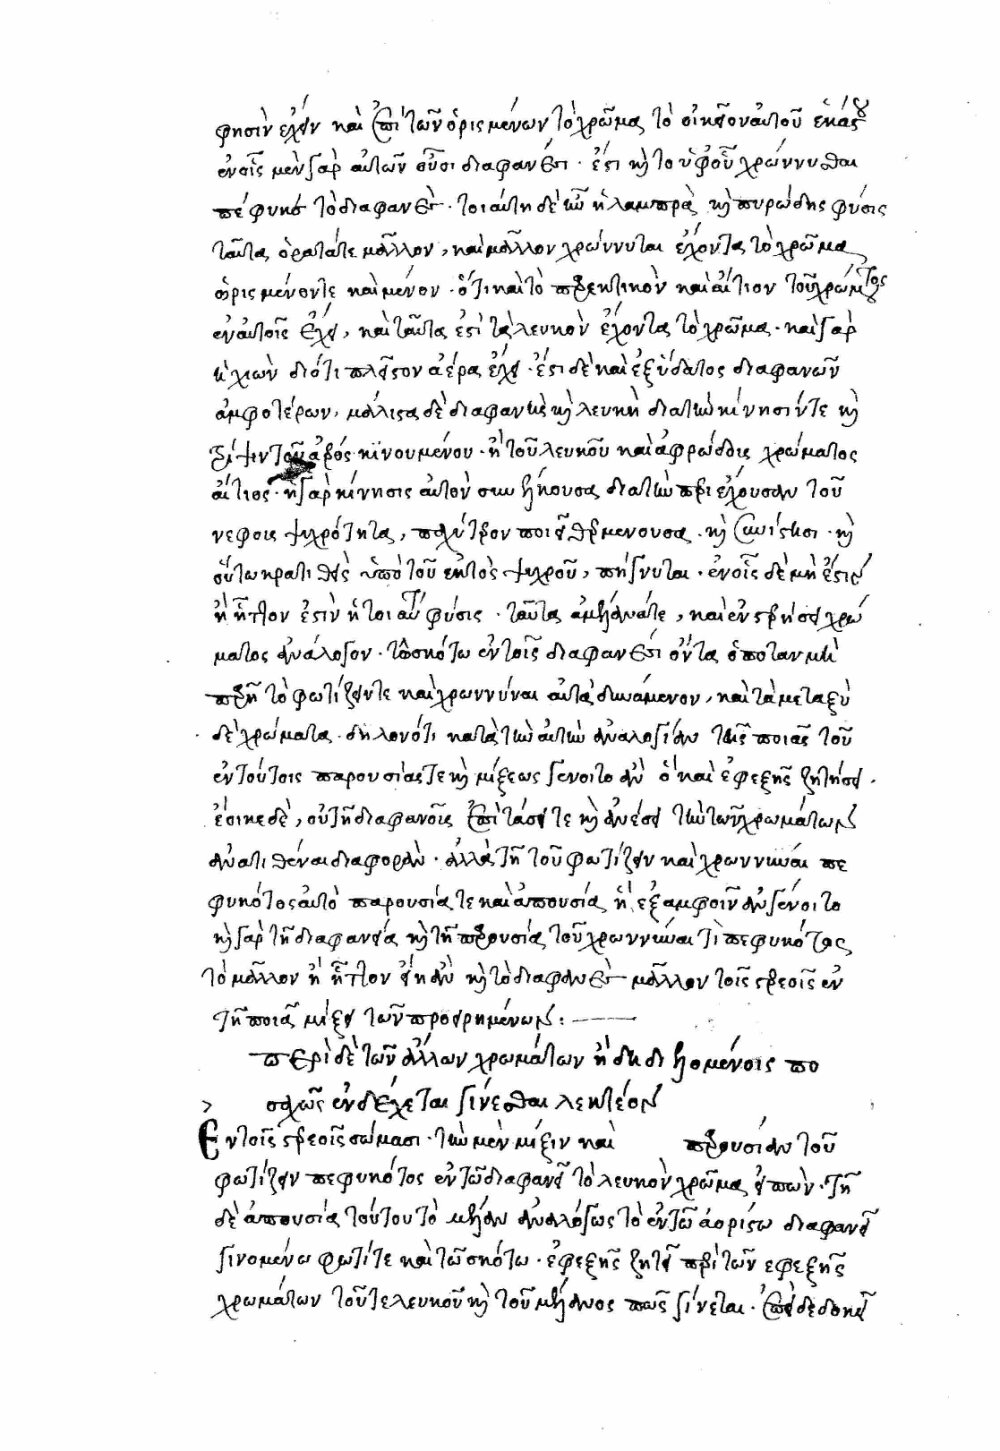 φησὶν ἔχειν καὶ ἐπὶ τῶν ὁρισμένων τὸ χρῶμα τὸ οἰκεῖον αὐτοῦ ἑκάστου
ἐν οἷς μὲν γὰρ αὐτῶν οὖσι διαφανέσι · ἔτι καὶ τὸ ὑφ' οὗ χρώννυσθαι
πέφυκε τὸ διαφανές · τοιαύτη δὲ ἦν ἡ λαμπρὰ καὶ πυρώδης φύσις
ταῦτα ὁρατά τε μᾶλλον, καὶ μᾶλλον χρώννυται ἔχοντα τὸ χρῶμα
ὡρισμένον τε καὶ μένον · ὅτι καὶ τὸ πρακτικὸν καὶ αἴτιον τοῦ χρώματος
ἐν αὐτοῖς ἔχει, καὶ ταῦτα ἐστὶ τὰ λευκὸν ἔχοντα τὸ χρῶμα · καὶ γὰρ
ἡ χιὼν διότι πλεῖστον ἀέρα ἔχει · ἔστι δὲ καὶ ἐξ ὕδατος διαφανῶν
ἀμφοτέρων, μάλιστα δὲ διαφανὴς καὶ λευκὴ διὰ τὴν κίνησίν τε καὶ
τρίψιν τοῦ ἀέρος κινουμένου · ἣ τοῦ λευκοῦ καὶ ἀφρώδους χρώματος
αἴτιος · ἡ γὰρ κίνησις αὐτὸν συνήκουσα διὰ τὴν περιέχουσαν τοῦ
νέφους ψυχρότητα, παχύτερον ποιεῖ θερμαίνουσα · καὶ συνίστησι · καὶ
οὕτω κρατηθεὶς ὑπὸ τοῦ ἐκτὸς ψυχροῦ, πήγνυται · ἐν οἷς δὲ μή ἐστιν
ἢ ἧττον ἐστὶν ἡ τοιαύτη φύσις · ταῦτα ἀμέλανά τε, καὶ ἐν στερήσει χρώ
ματος ἀνάλογον · τῷ σκότῳ ἐν τοῖς διαφανέσι ὄντα ὁπόταν μὴ
παρῇ τὸ φωτίζειν τε καὶ χρωννύναι αὐτὰ δυνάμενον, καὶ τὰ μεταξὺ
δὲ χρώματα · δηλονότι κατὰ τὴν αὐτὴν ἀναλογίαν τῆς ποιᾶς τοῦ
ἐν τούτοις παρουσίας τε καὶ μίξεως γένοιτο ἂν ὁ καὶ ἐφεξῆς ζητήσει ·
ἔοικε δὲ, οὐ τῇ διαφανοῦς ἐπιτάσει τε καὶ ἀνέσει τὴν τῶν χρωμάτων
ἀνατιθέναι διαφορὰν · ἀλλὰ τῇ τοῦ φωτίζειν καὶ χρωννύναι πε
φυκότος αὐτὸ παρουσίᾳ τε καὶ ἀπουσίᾳ, ἢ ἐξ ἀμφοῖν ἂν γένοιτο
καὶ γὰρ τῇ διαφανείᾳ καὶ τῇ παρουσίᾳ τοῦ χρωννύναι τι πεφυκότος
τὸ μᾶλλον ἢ ἧττον εἴη ἂν καὶ τὸ διαφανὲς μᾶλλον τοῖς στερεοῖς ἐν
τῇ ποιᾷ μίξει τῶν προειρημένων :
περὶ δὲ τῶν ἄλλων χρωμάτων ἤδη διελομένοις πο
σαχῶς ἐνδέχεται γίνεσθαι λεκτέον
Ἐν τοῖς στερεοῖς σώμασι · τὴν μὲν μίξιν καὶ παρουσίαν τοῦ
φωτίζειν πεφυκότος ἐν τῷ διαφανεῖ τὸ λευκὸν χρῶμα εἰπὼν · τῇ
δὲ ἀπουσίᾳ τούτου τὸ μέλαν ἀναλόγως τὸ ἐν τῷ ἀορίστῳ διαφανεῖ
γινομένῳ φωτί τε καὶ τῷ σκότῳ · ἐφεξῆς ζητεῖ περὶ τῶν ἐφεξῆς
χρωμάτων τοῦ τε λευκοῦ καὶ τοῦ μέλανος πῶς γίνεται · ἐπεὶ δὲ δοκεῖ